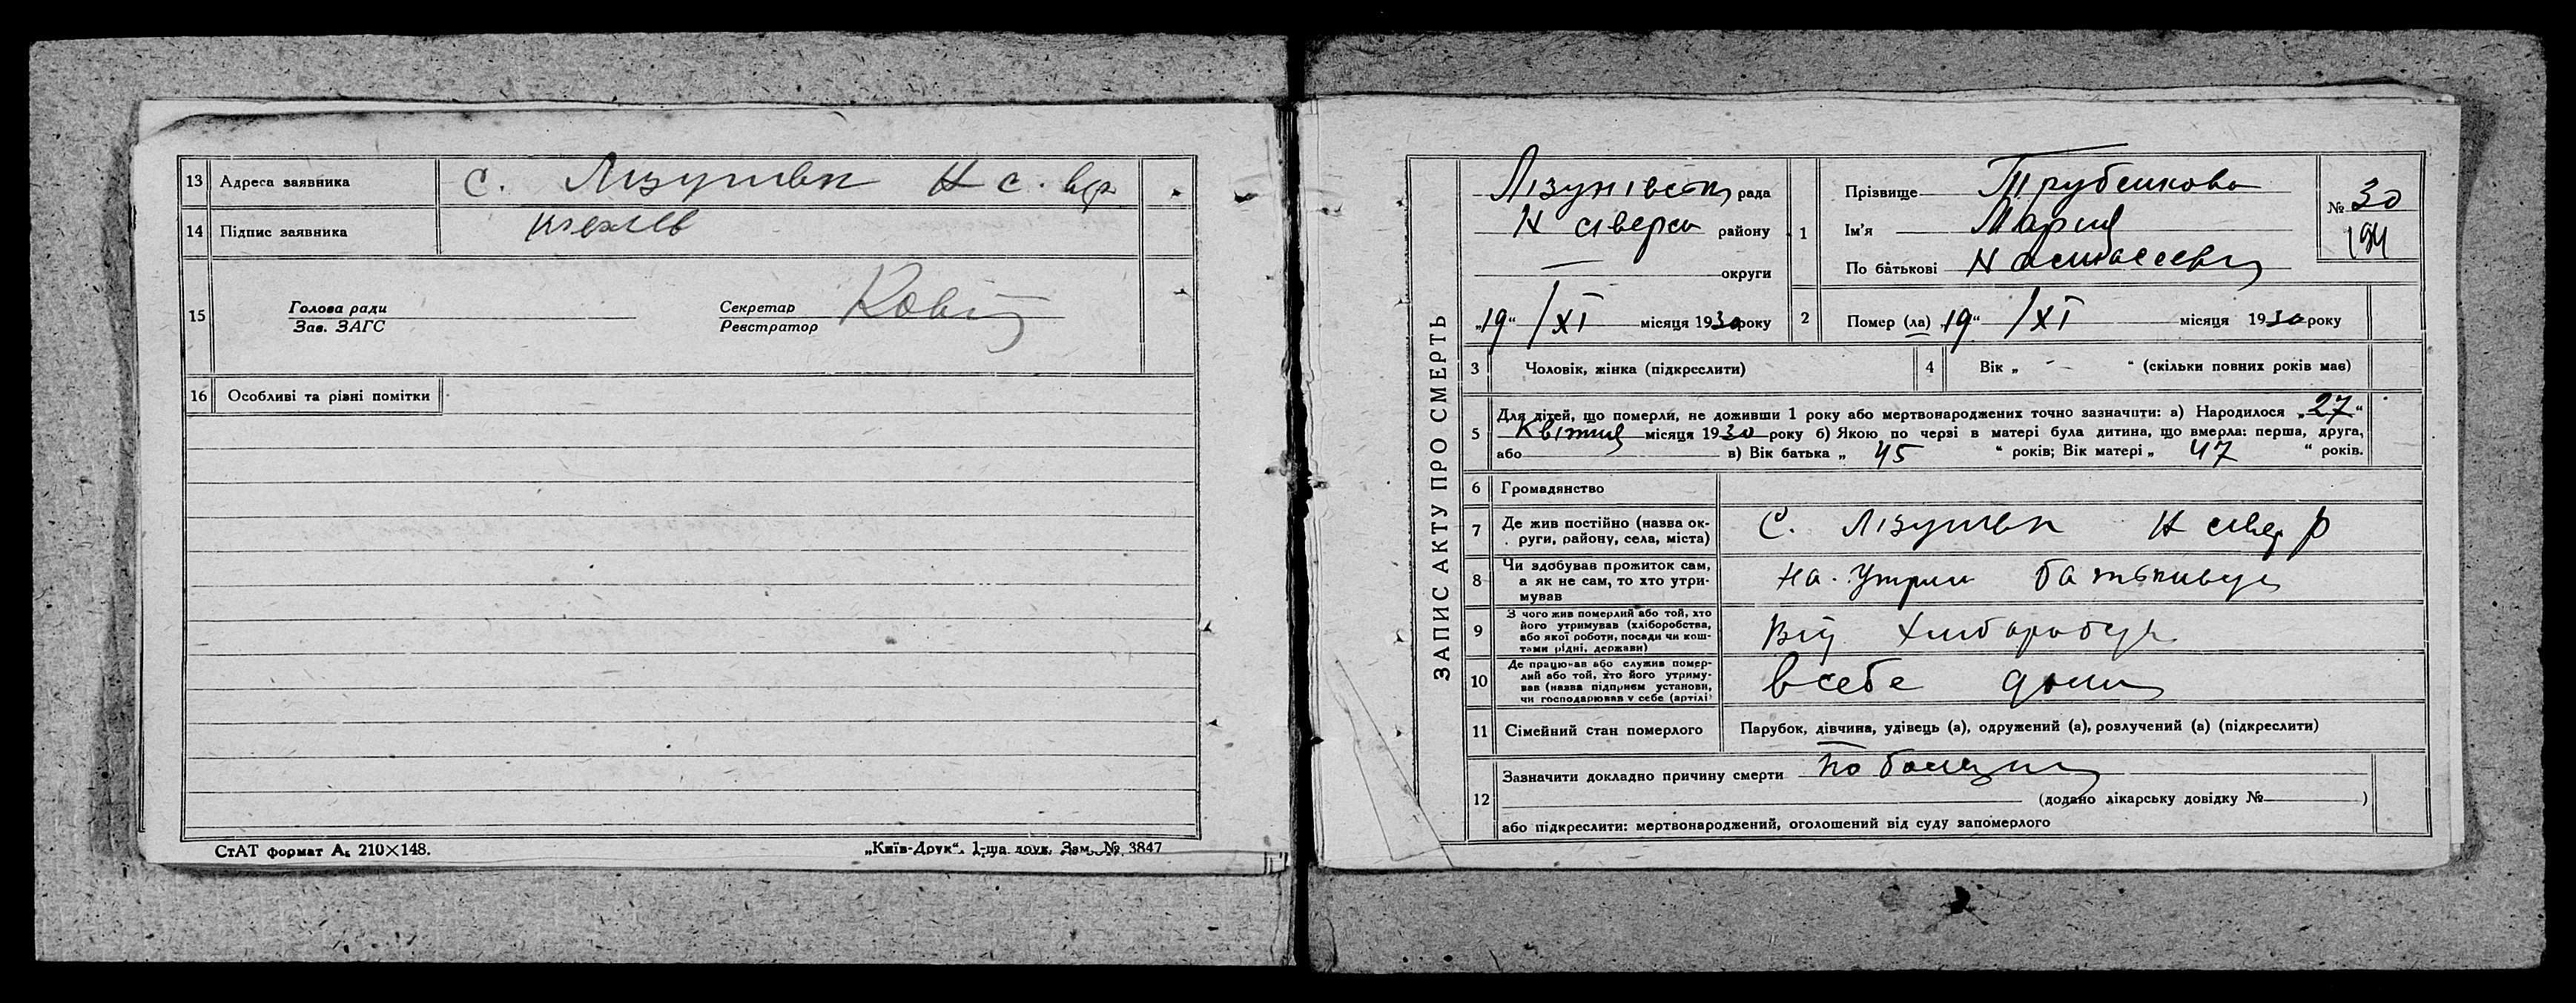 13 Адреса заявника с. Лізунівк Н с. вр
14 Підпис заявника
15 Голова ради
Зав. ЗАГС
Секретар
Реєстратор
16 Особливі та різні помітки
СтАТ формат А₅ 210×148.
„Київ-Друк“. 1-ша друк. Зам. № 3847
ЗАПИС АКТУ ПРО СМЕРТЬ
Лізунівська рада
Н сіверськ району
— округи
„19“ /XI місяця 1930 року
1 Прізвище Трубенкова
Ім'я Мария
По батькові
№ 30
194
2 Помер (ла) „19“ /XI місяця 1930 року
3 Чоловік, жінка (підкреслити)
4 Вік „ — “ (скільки повних років має)
5 Для дітей, що померли, не доживши 1 року або мертвонароджених точно зазначити: а) Народилося „27“
Квітня місяця 1930 року б) Якою по черзі в матері була дитина, що вмерла: перша, друга,
або в) Вік батька „ 45 “ років; Вік матері „ 47 “ років.
6 Громадянство
7 Де жив постійно (назва ок-
руги, району, села, міста) С. Лізунівк Н сівер р
8 Чи здобував прожиток сам,
а як не сам, то хто утри-
мував на утрим батьківщ
9 З чого жив померлий або той, хто
його утримував (хліборобства,
або якої роботи, посади чи кош-
тами рідні, держави) Від хліборобст
10 Де працював або служив помер-
лий або той, хто його утриму-
вав (назва підприєм установи,
чи господарював у себе (артілі) в себе дома
11 Сімейний стан померлого Парубок, дівчина, удівець (а), одружений (а), розлучений (а) (підкреслити)
12 Зазначити докладно причину смерти По болезни
(додано лікарську довідку № )
або підкреслити: мертвонароджений, оголошений від суду запомерлого